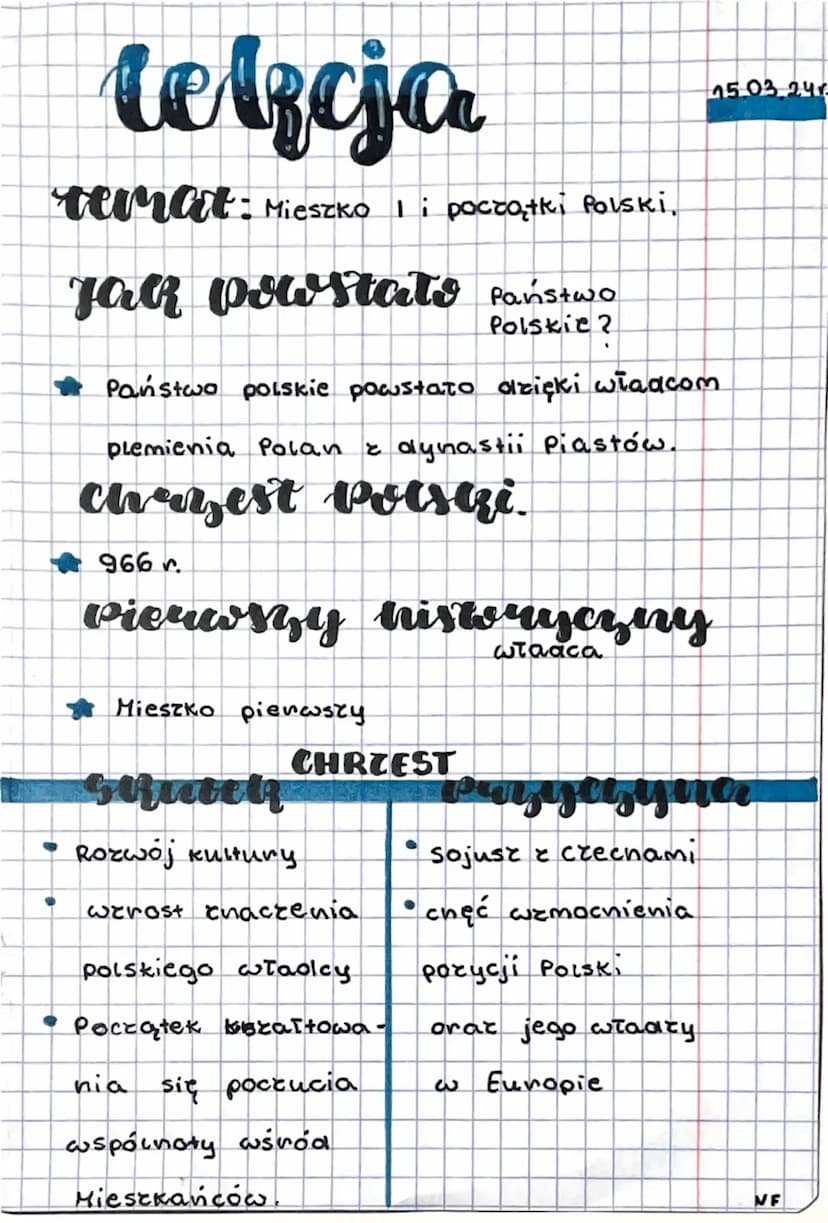 lekcja
15.03.24r.
temat: Mieszko I i początki Polski.
Jak powstało Państwo
Polskie?
Państwo polskie powstało dzięki władcom
plemienia Polan z dynastii Piastów.
Chrzest Polski.
966 r.
Pierwszy historyczny
władca
Mieszko pierwszy
CHRZEST
Skutek
Przyczyna
Rozwój kultury
wzrost znaczenia
polskiego władcy
Początek kształtowa-
nia się poczucia
wspólnoty wśród
Mieszkańców.
sojusz z czechami
chęć wzmocnienia
pozycji Polski
oraz jego władzy
w Europie
NF